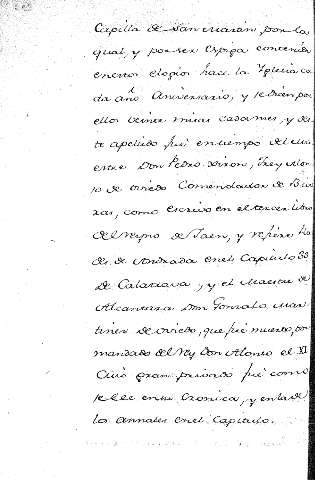 Capilla de San Martin, por la
qual, y por ser Espejo contenido
en estos elogios hace la Yglesia ca
da año Aniversario, y se dicen por
ellos veinte misas cada mes, y de es
te apellido fué en tiempo del Ma
estre Don Pedro Xiron, Frey Alon
so de Oviedo Comendador de
como escrivo en el tercer libro
del Reyno de Jaen, y refiere Ra
des de Andrada en el Capitulo 38
de Calatrava, y el Maestre de
Alcantara Don Gonzalo Mar
tinez de Oviedo, que fué muerto, por
mandado del Rey Don Alonso el XI
Cuio gran privado fué como
se lee en su Cronica, y en la de
los Annales en el Capitulo.